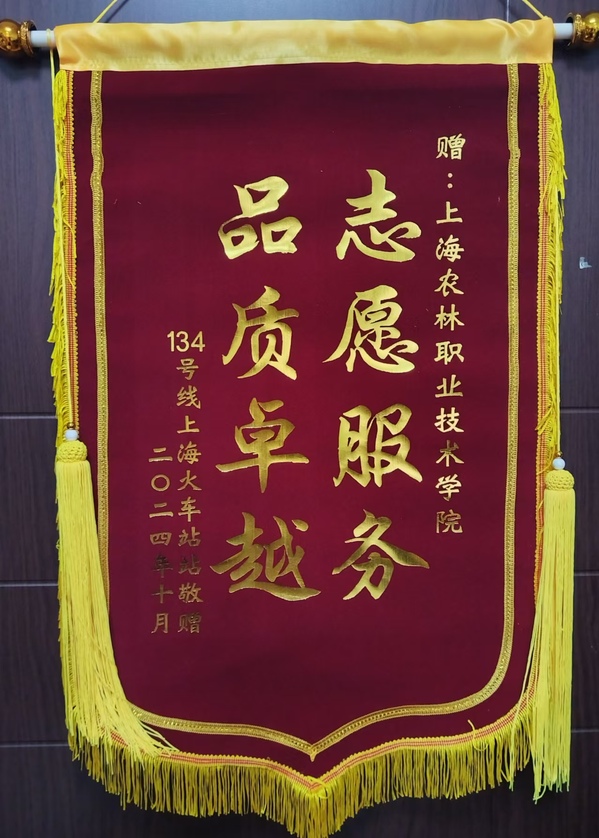 赠：上海农林职业技术学院
志愿服务
品质卓越
134号线上海火车站站敬赠
二〇二四年十月